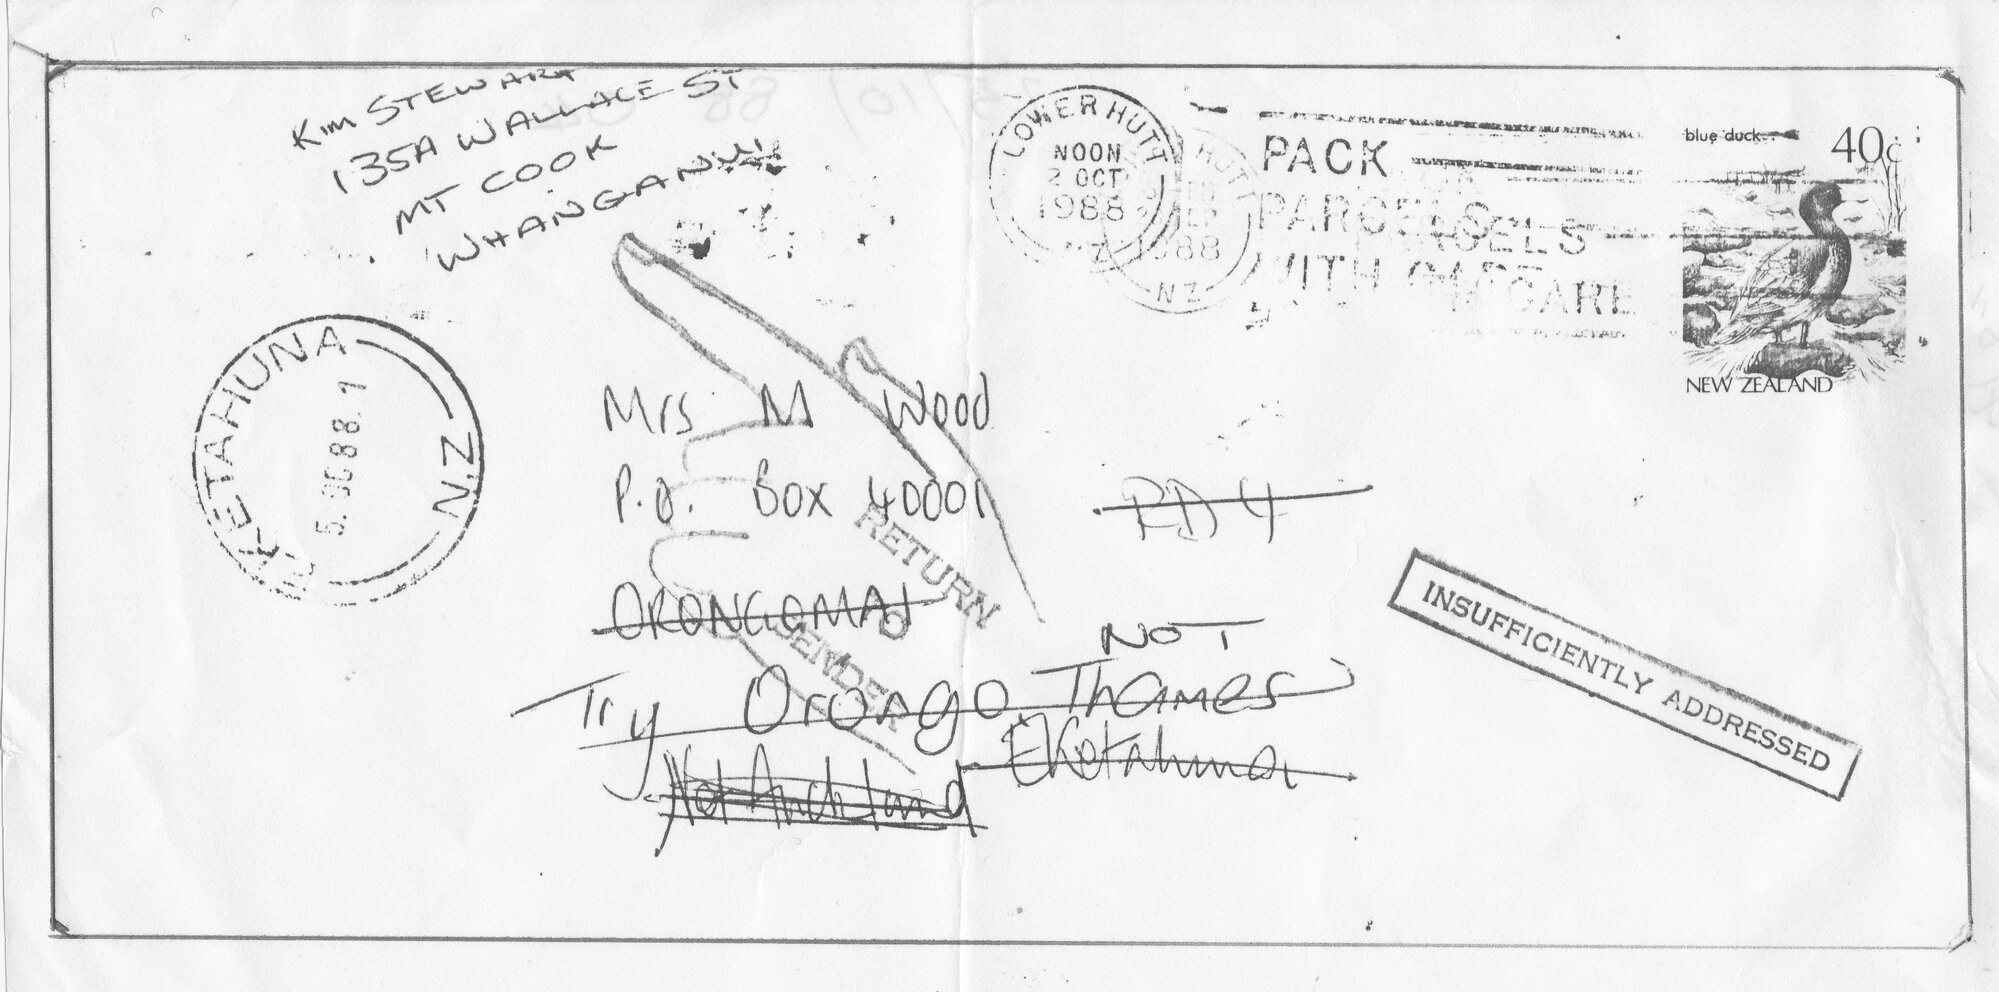 KIM STEWART
135A WALLACE ST
MT COOK
WHANGANUI
LOWER HUTT
NOON
2 OCT
1988
NZ
HUTT
1988
NZ
PACK
PARCELS
WITH CARE
PARCELS
CARE
blue duck
40c
NEW ZEALAND
EKETAHUNA
N.Z.
5. OC 88. 1
Mrs M Wood
P.O. Box 40001
RD 4
ORONGOMAI
RETURN
TO
SENDER
NOT
Try Orongo Thames
Not Auckland Eketahuna
INSUFFICIENTLY ADDRESSED